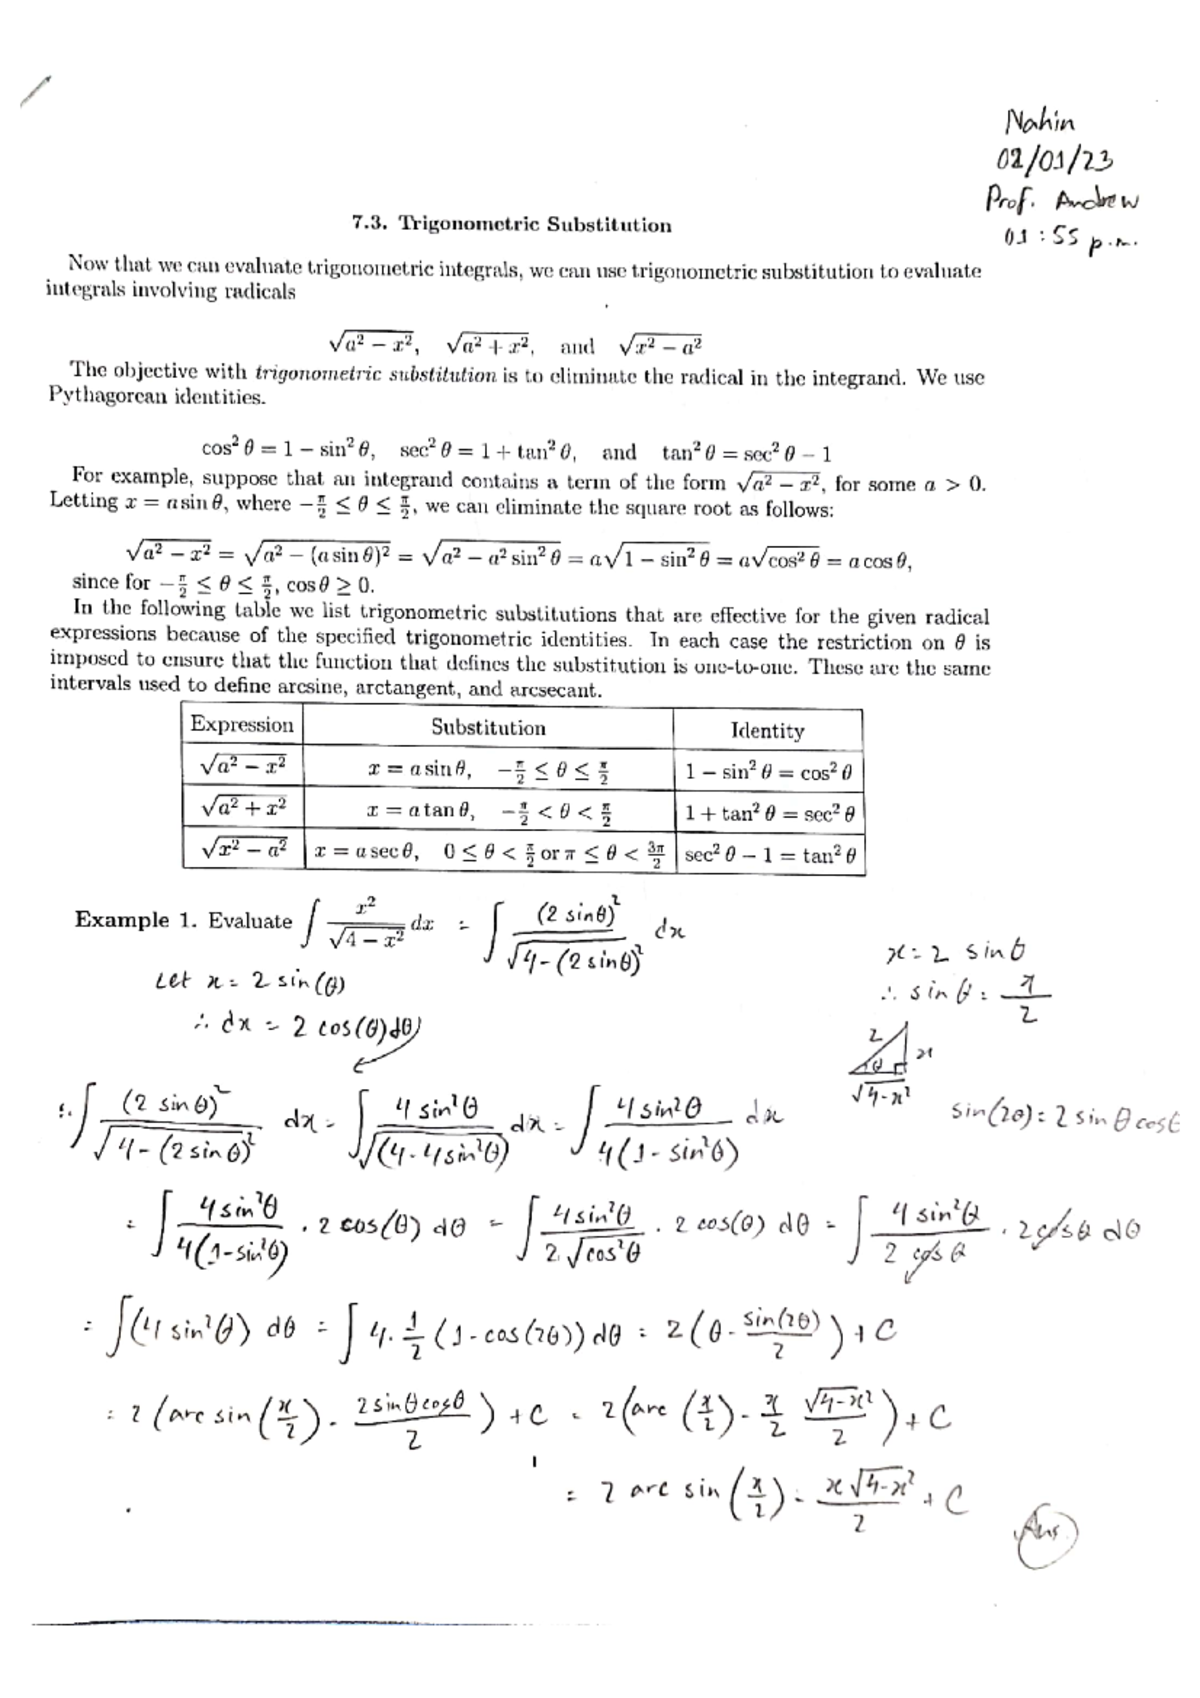 Nahin
02/01/23
Prof. Andrew
01:55 p.m.
7.3. Trigonometric Substitution
Now that we can evaluate trigonometric integrals, we can use trigonometric substitution to evaluate
integrals involving radicals
√(a² − x²), √(a² + x²), and √(x² − a²)
The objective with trigonometric substitution is to eliminate the radical in the integrand. We use
Pythagorean identities.
cos² θ = 1 − sin² θ, sec² θ = 1 + tan² θ, and tan² θ = sec² θ − 1
For example, suppose that an integrand contains a term of the form √(a² − x²), for some a > 0.
Letting x = a sin θ, where −π/2 ≤ θ ≤ π/2, we can eliminate the square root as follows:
√(a² − x²) = √(a² − (a sin θ)²) = √(a² − a² sin² θ) = a√(1 − sin² θ) = a√(cos² θ) = a cos θ,
since for −π/2 ≤ θ ≤ π/2, cos θ ≥ 0.
In the following table we list trigonometric substitutions that are effective for the given radical
expressions because of the specified trigonometric identities. In each case the restriction on θ is
imposed to ensure that the function that defines the substitution is one-to-one. These are the same
intervals used to define arcsine, arctangent, and arcsecant.
Expression Substitution Identity
√(a² − x²) x = a sin θ, −π/2 ≤ θ ≤ π/2 1 − sin² θ = cos² θ
√(a² + x²) x = a tan θ, −π/2 < θ < π/2 1 + tan² θ = sec² θ
√(x² − a²) x = a sec θ, 0 ≤ θ < π/2 or π ≤ θ < 3π/2 sec² θ − 1 = tan² θ
Example 1. Evaluate ∫ x²/√(4 − x²) dx = ∫ (2 sinθ)²/√(4−(2 sinθ)²) dx
Let x = 2 sin(θ)
∴ dx = 2 cos(θ)dθ
x = 2 sinθ
∴ sin θ = x/2
2
x
θ
√(4−x²)
sin(2θ) = 2 sin θ cosθ
∴ ∫ (2 sinθ)²/√(4−(2 sinθ)²) dx = ∫ 4 sin²θ/√(4−4sin²θ) dx = ∫ 4 sin²θ/4(1−sin²θ) dx
= ∫ 4 sin²θ/4(1−sin²θ) · 2 cos(θ) dθ = ∫ 4 sin²θ/2√(cos²θ) · 2 cos(θ) dθ = ∫ 4 sin²θ/2 cosθ · 2 cosθ dθ
= ∫(4 sin²θ) dθ = ∫ 4 · 1/2 (1−cos(2θ)) dθ = 2(θ − sin(2θ)/2) + C
= 2 (arc sin (x/2) − 2 sinθ cosθ/2) + C = 2(arc (x/2) − x/2 √(4−x²)/2) + C
= 2 arc sin (x/2) − x√(4−x²)/2 + C
Ans